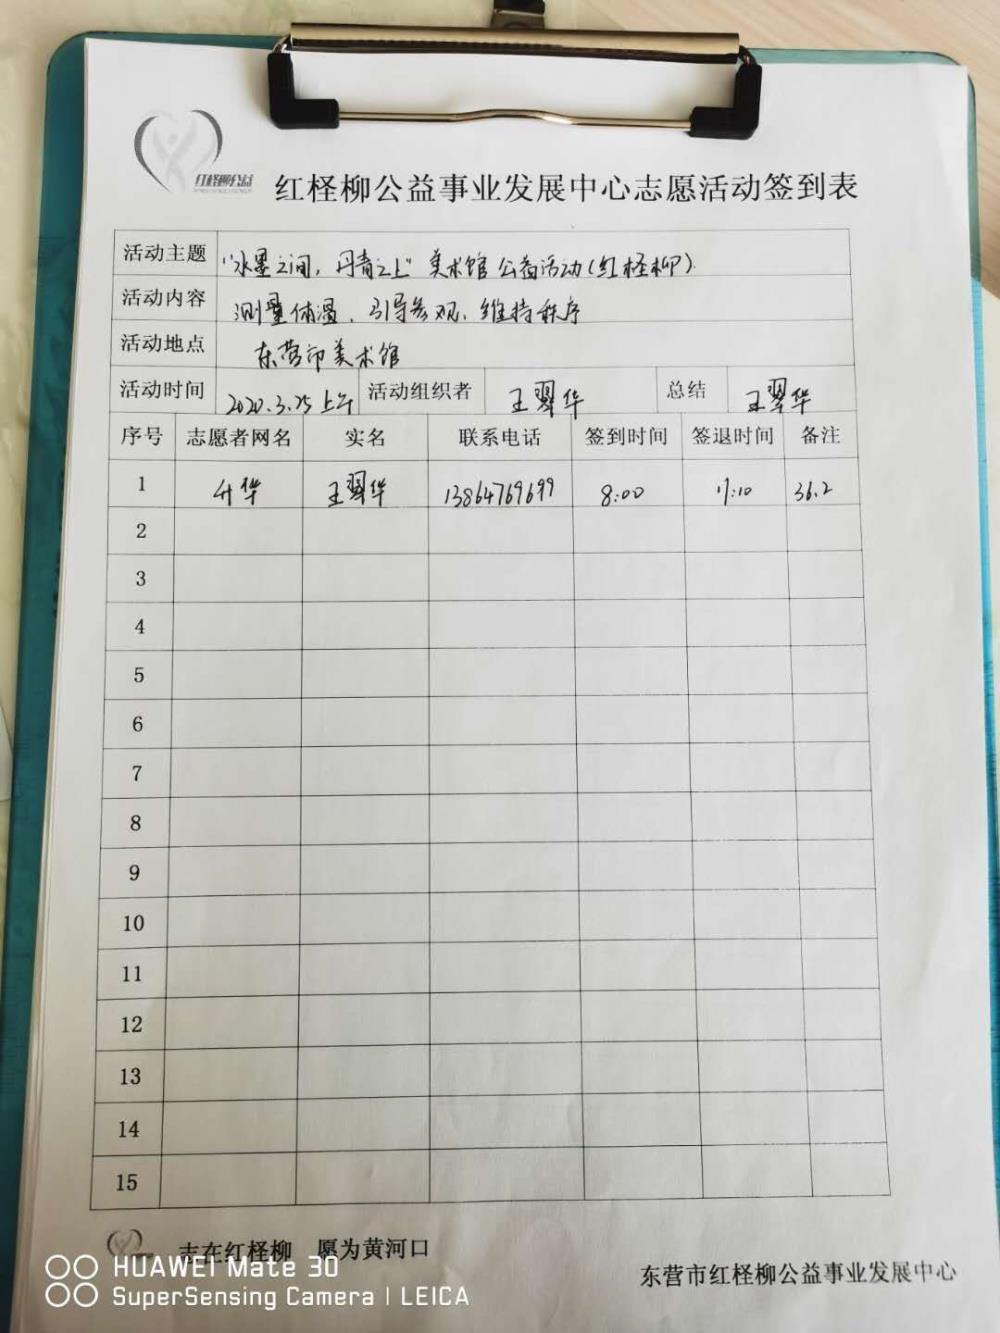 红柽柳公益
红柽柳公益事业发展中心志愿活动签到表
活动主题 “水墨之间，丹青之上”美术馆公益活动(红柽柳)
活动内容 测量体温、引导参观、维持秩序
活动地点 东营市美术馆
活动时间 2020.3.25上午 活动组织者 王翠华 总结 王翠华
序号 志愿者网名 实名 联系电话 签到时间 签退时间 备注
1 升华 王翠华 13864769699 8:00 11:10 36.2
2
3
4
5
6
7
8
9
10
11
12
13
14
15
志在红柽柳 愿为黄河口
东营市红柽柳公益事业发展中心
HUAWEI Mate 30
SuperSensing Camera | LEICA